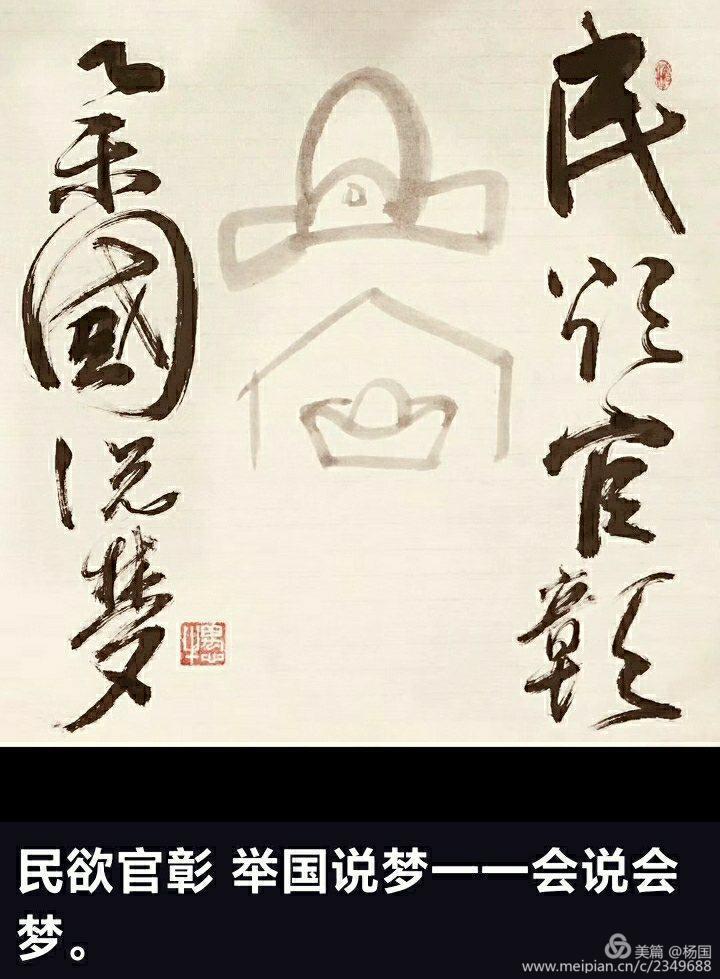 民欲官彰
举國说梦
民欲官彰 举国说梦一一会说会
梦。
美篇 @杨国
www.meipian.cn/c/2349688